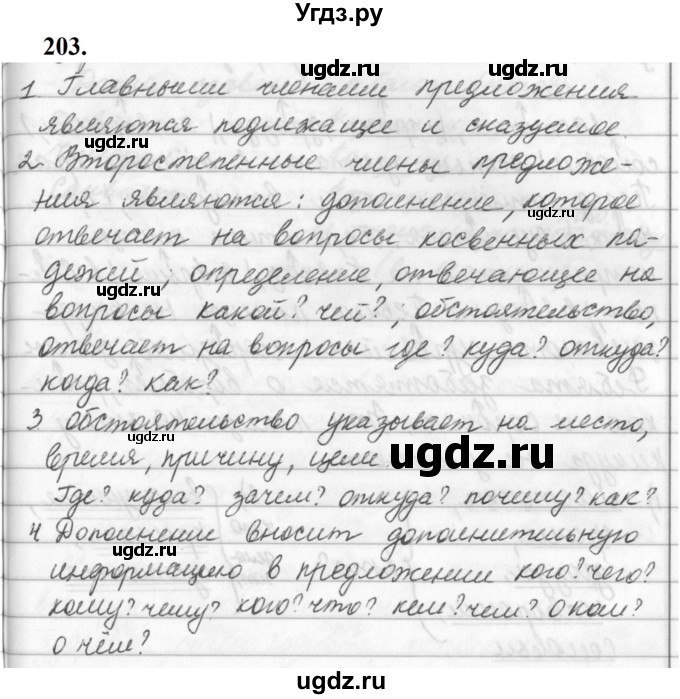 Угдз.ру
203.
ugdz.ru
1 Главными членами предложения
являются подлежащее и сказуемое.
ugdz.ru
2. Второстепенные члены предложе-
ния являются: дополнение, которое
ugdz.ru
отвечает на вопросы косвенных па-
ugdz.ru
дежей; определение, отвечающее на
вопросы какой? чей?; обстоятельство,
ugdz.ru
отвечает на вопросы где? куда? откуда?
когда? как?
3 Обстоятельство указывает на место,
ugdz.ru
время, причину, цели.
ugdz.ru
Где? куда? зачем? откуда? почему? как?
4 Дополнение вносит дополнительную
ugdz.ru
информацию в предложении кого? чего?
ugdz.ru
кому? чему? кого? что? кем? чем? о ком?
о чём?
ugdz.ru